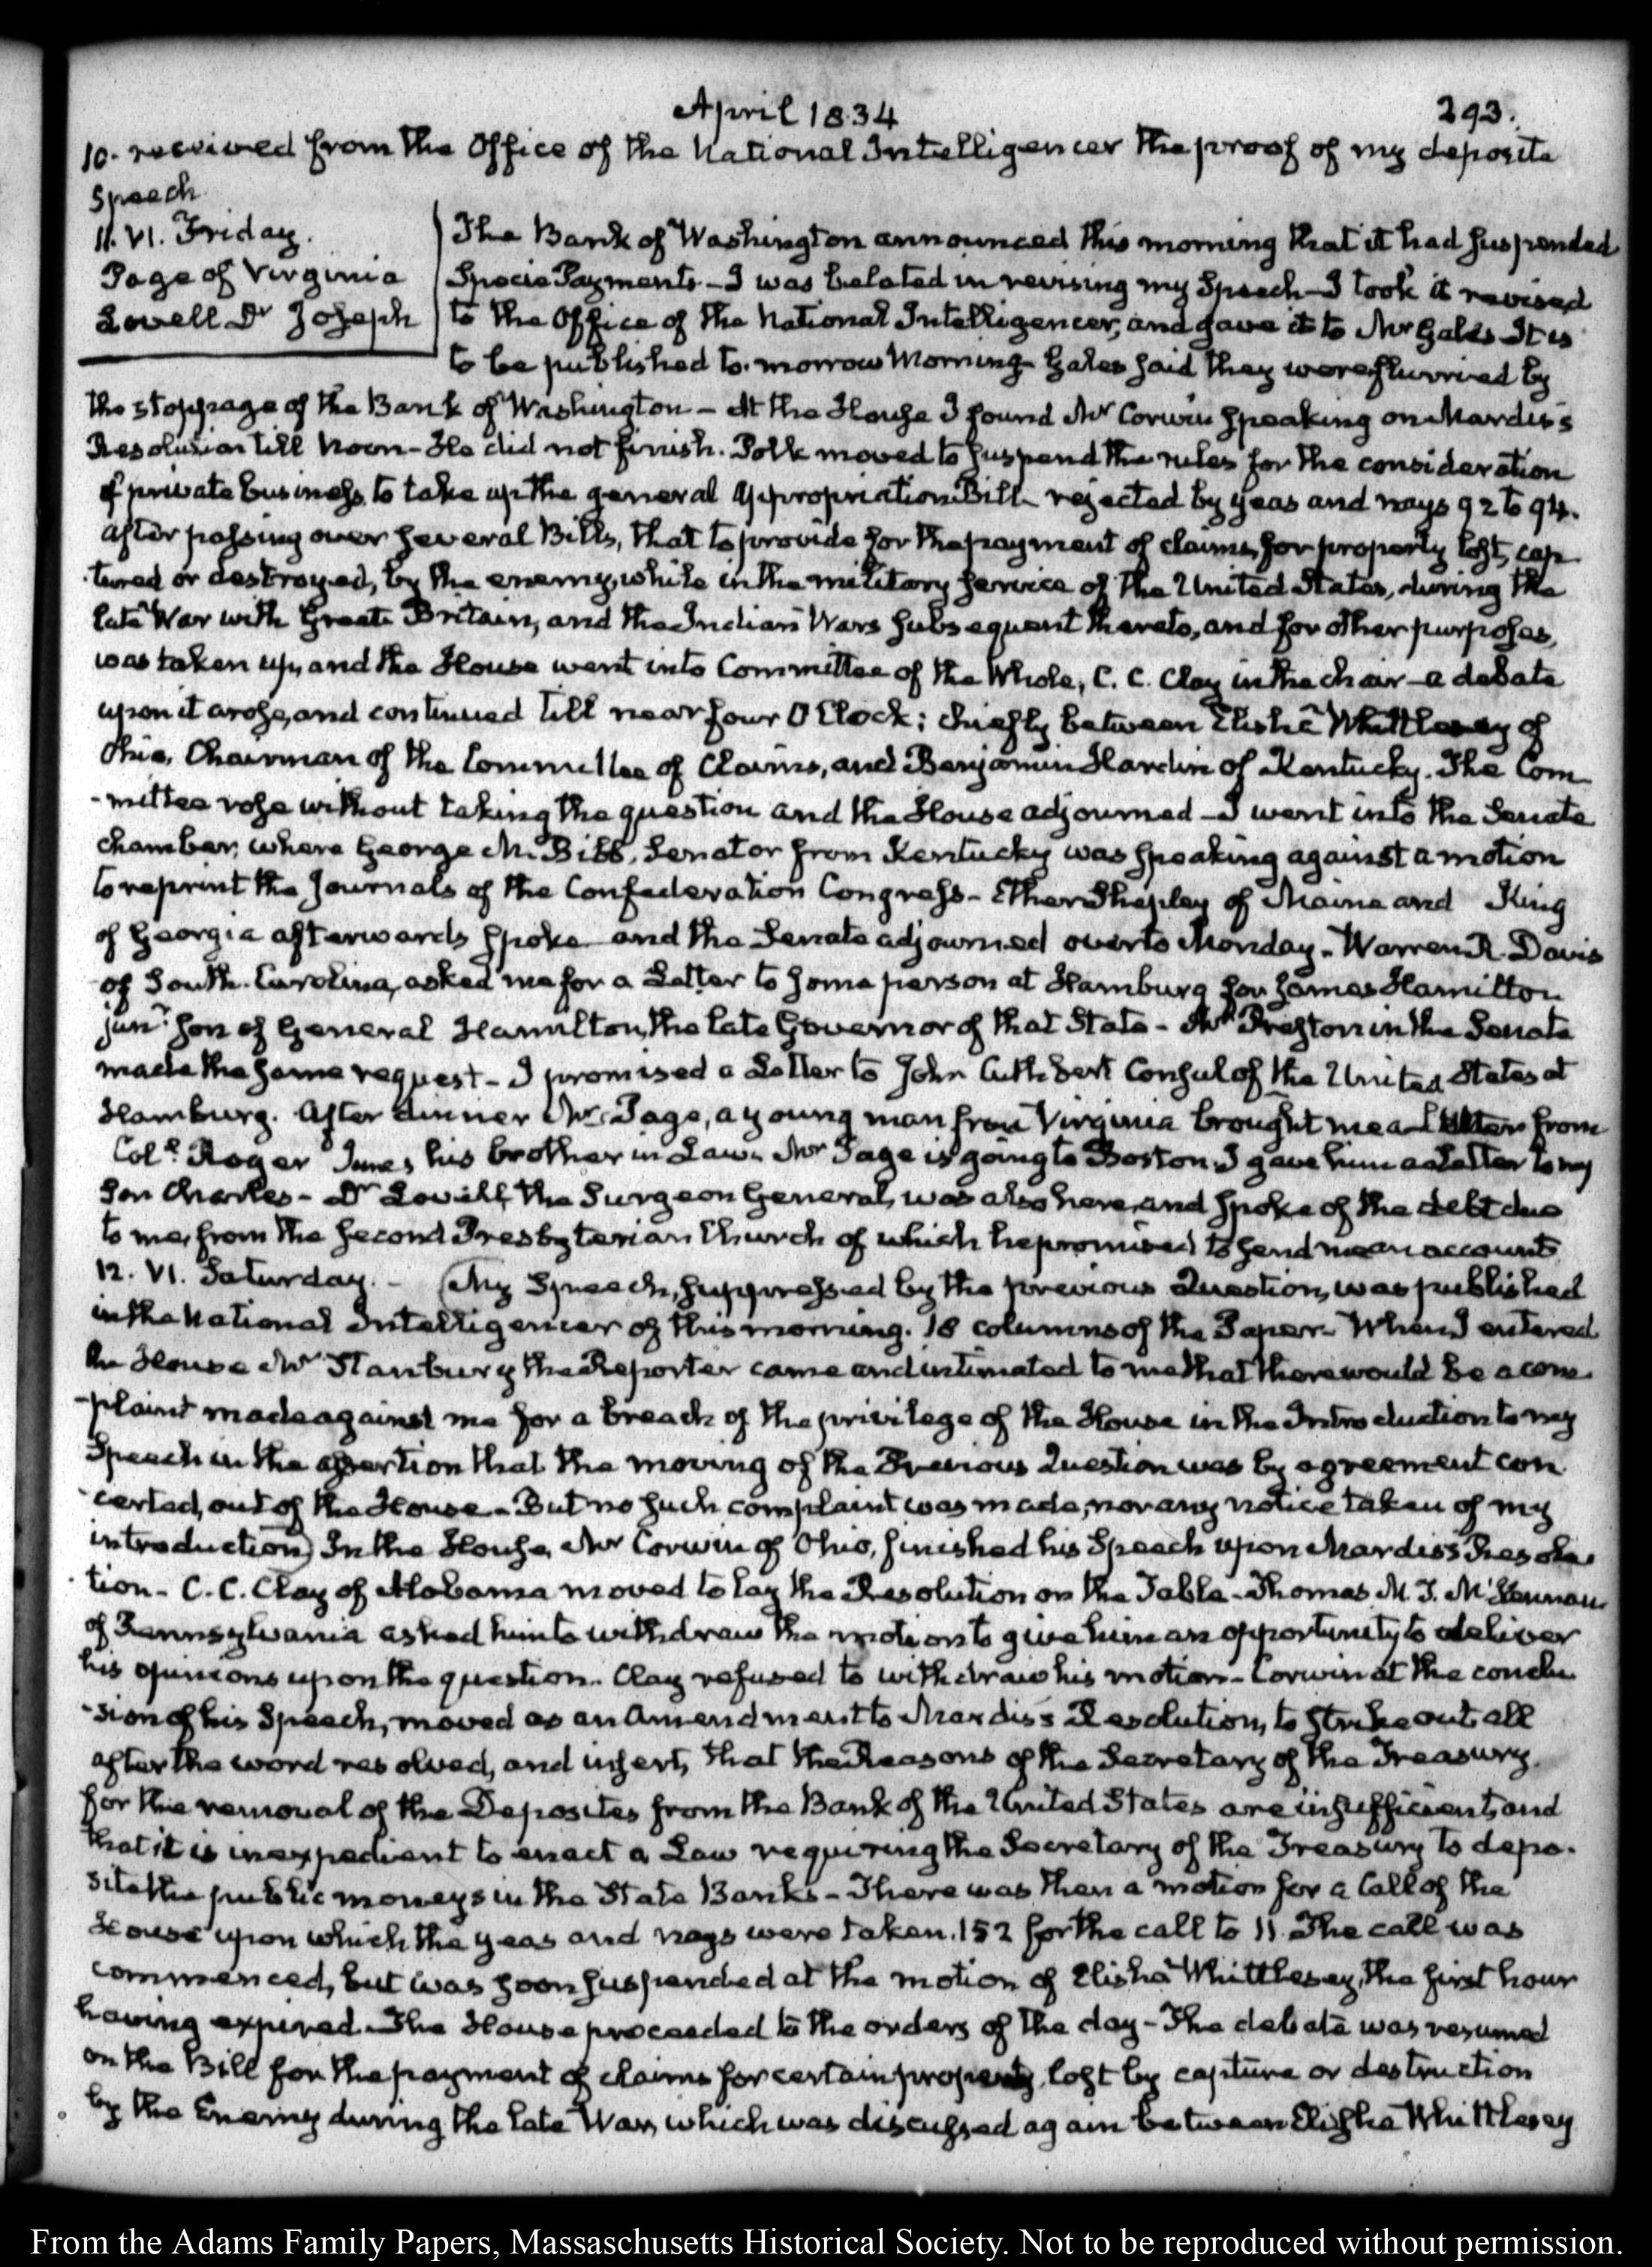 April 1834
293.
10. received from the Office of the National Intelligencer the proof of my deposite
Speech
11. VI. Friday.
Page of Virginia
Lovell Dr Joseph
The Bank of Washington announced this morning that it had suspended
Specie Payments – I was belated in revising my Speech – I took it revised
to the Office of the National Intelligencer, and gave it to Mr Gales. It is
to be published to-morrow Morning – Gales said they were flurried by
the stoppage of the Bank of Washington – At the House I found Mr Corwin speaking on Mardis's
Resolution till Noon – He did not finish. Polk moved to suspend the rules for the consideration
of private business, to take up the general Appropriation Bill – rejected by yeas and nays 92 to 94.
After passing over several Bills, that to provide for the payment of claims, for property lost, cap
-tured or destroyed, by the enemy, while in the military service of the United States, during the
late War with Great Britain, and the Indian Wars subsequent thereto, and for other purposes,
was taken up, and the House went into Committee of the Whole, C. C. Clay in the chair – a debate
upon it arose, and continued till near four O'Clock; chiefly between Elisha Whittlesey of
Ohio, Chairman of the Committee of Claims, and Benjamin Hardin of Kentucky. The Com
-mittee rose without taking the question and the House adjourned – I went into the Senate
chamber, where George M. Bibb, Senator from Kentucky was speaking against a motion
to reprint the Journals of the Confederation Congress – Ether Shepley of Maine and King
of Georgia afterwards spoke and the Senate adjourned over to Monday – Warren R. Davis
of South-Carolina, asked me for a Letter to some person at Hamburg for James Hamilton
junr son of General Hamilton, the late Governor of that State – Mr Preston in the Senate
made the same request – I promised a Letter to John Cuthbert Consul of the United States at
Hamburg. After dinner Mr Page, a young man from Virginia brought me a Letter from
Coll. Roger Jones, his brother in Law. Mr Page is going to Boston. I gave him a Letter to my
Son Charles – Dr Lovell, the Surgeon General, was also here, and spoke of the debt due
to me, from the second Presbyterian Church of which he promised to send me an account.
12. VI. Saturday. – (My Speech, suppressed by the previous Question, was published
in the National Intelligencer of this morning. 18 columns of the Paper – When I entered
the House Mr Stanbury the Reporter came and intimated to me that there would be a com
-plaint made against me for a breach of the privilege of the House in the Introduction to my
Speech in the assertion that the moving of the Previous Question was by agreement con
-certed, out of the House – But no such complaint was made, nor any notice taken of my
introduction) In the House, Mr Corwin of Ohio, finished his Speech upon Mardis's Resolu
-tion – C. C. Clay of Alabama moved to lay the Resolution on the Table – Thomas M. T. McKennan
of Pennsylvania asked him to withdraw the motion to give him an opportunity to deliver
his opinions upon the question. Clay refused to withdraw his motion – Corwin at the conclu
-sion of his Speech, moved as an Amendment to Mardis's Resolution, to strike out all
after the word resolved, and insert, that the Reasons of the Secretary of the Treasury
for the removal of the Deposites from the Bank of the United States are insufficient, and
that it is inexpedient to enact a Law requiring the Secretary of the Treasury to depo-
site the public moneys in the State Banks – There was then a motion for a Call of the
House upon which the yeas and nays were taken. 152 for the call to 11. The call was
commenced, but was soon suspended at the motion of Elisha Whittlesey, the first hour
having expired. The House proceeded to the orders of the day – The debate was resumed
on the Bill for the payment of claims for certain property, lost by capture or destruction
by the Enemy during the late War, which was discussed again between Elisha Whittlesey
From the Adams Family Papers, Massachusetts Historical Society. Not to be reproduced without permission.